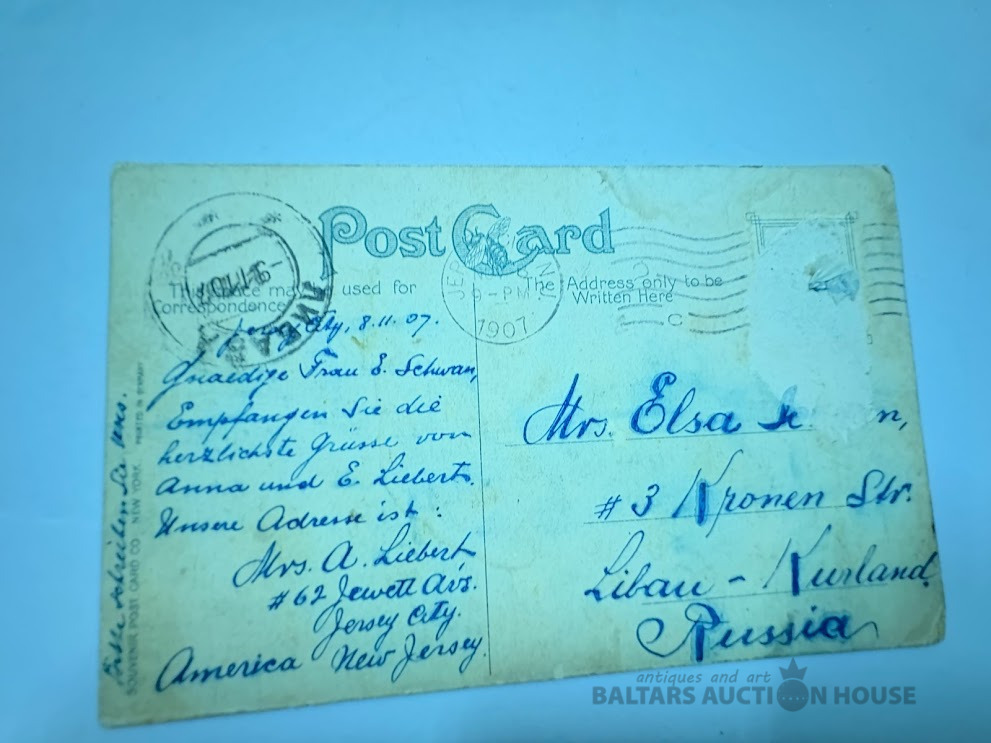 Post Card
This space may be used for
Correspondence
The Address only to be
Written Here
9-PM
1907
Jersey City, 8.11.07.
Gnaedige Frau E. Schwan,
Empfangen Sie die
herzlichste Grüsse von
Anna und E. Liebert.
Unsere Adresse ist :
Mrs. A. Liebert
#62 Jewett Ave.
Jersey City.
America New Jersey.
Bitte schreiben Sie uns.
SOUVENIR POST CARD CO. NEW YORK. PRINTED IN GERMANY
Mrs. Elsa
#3 Kronen Str.
Libau - Kurland
Russia
antiques and art
BALTARS AUCTION HOUSE